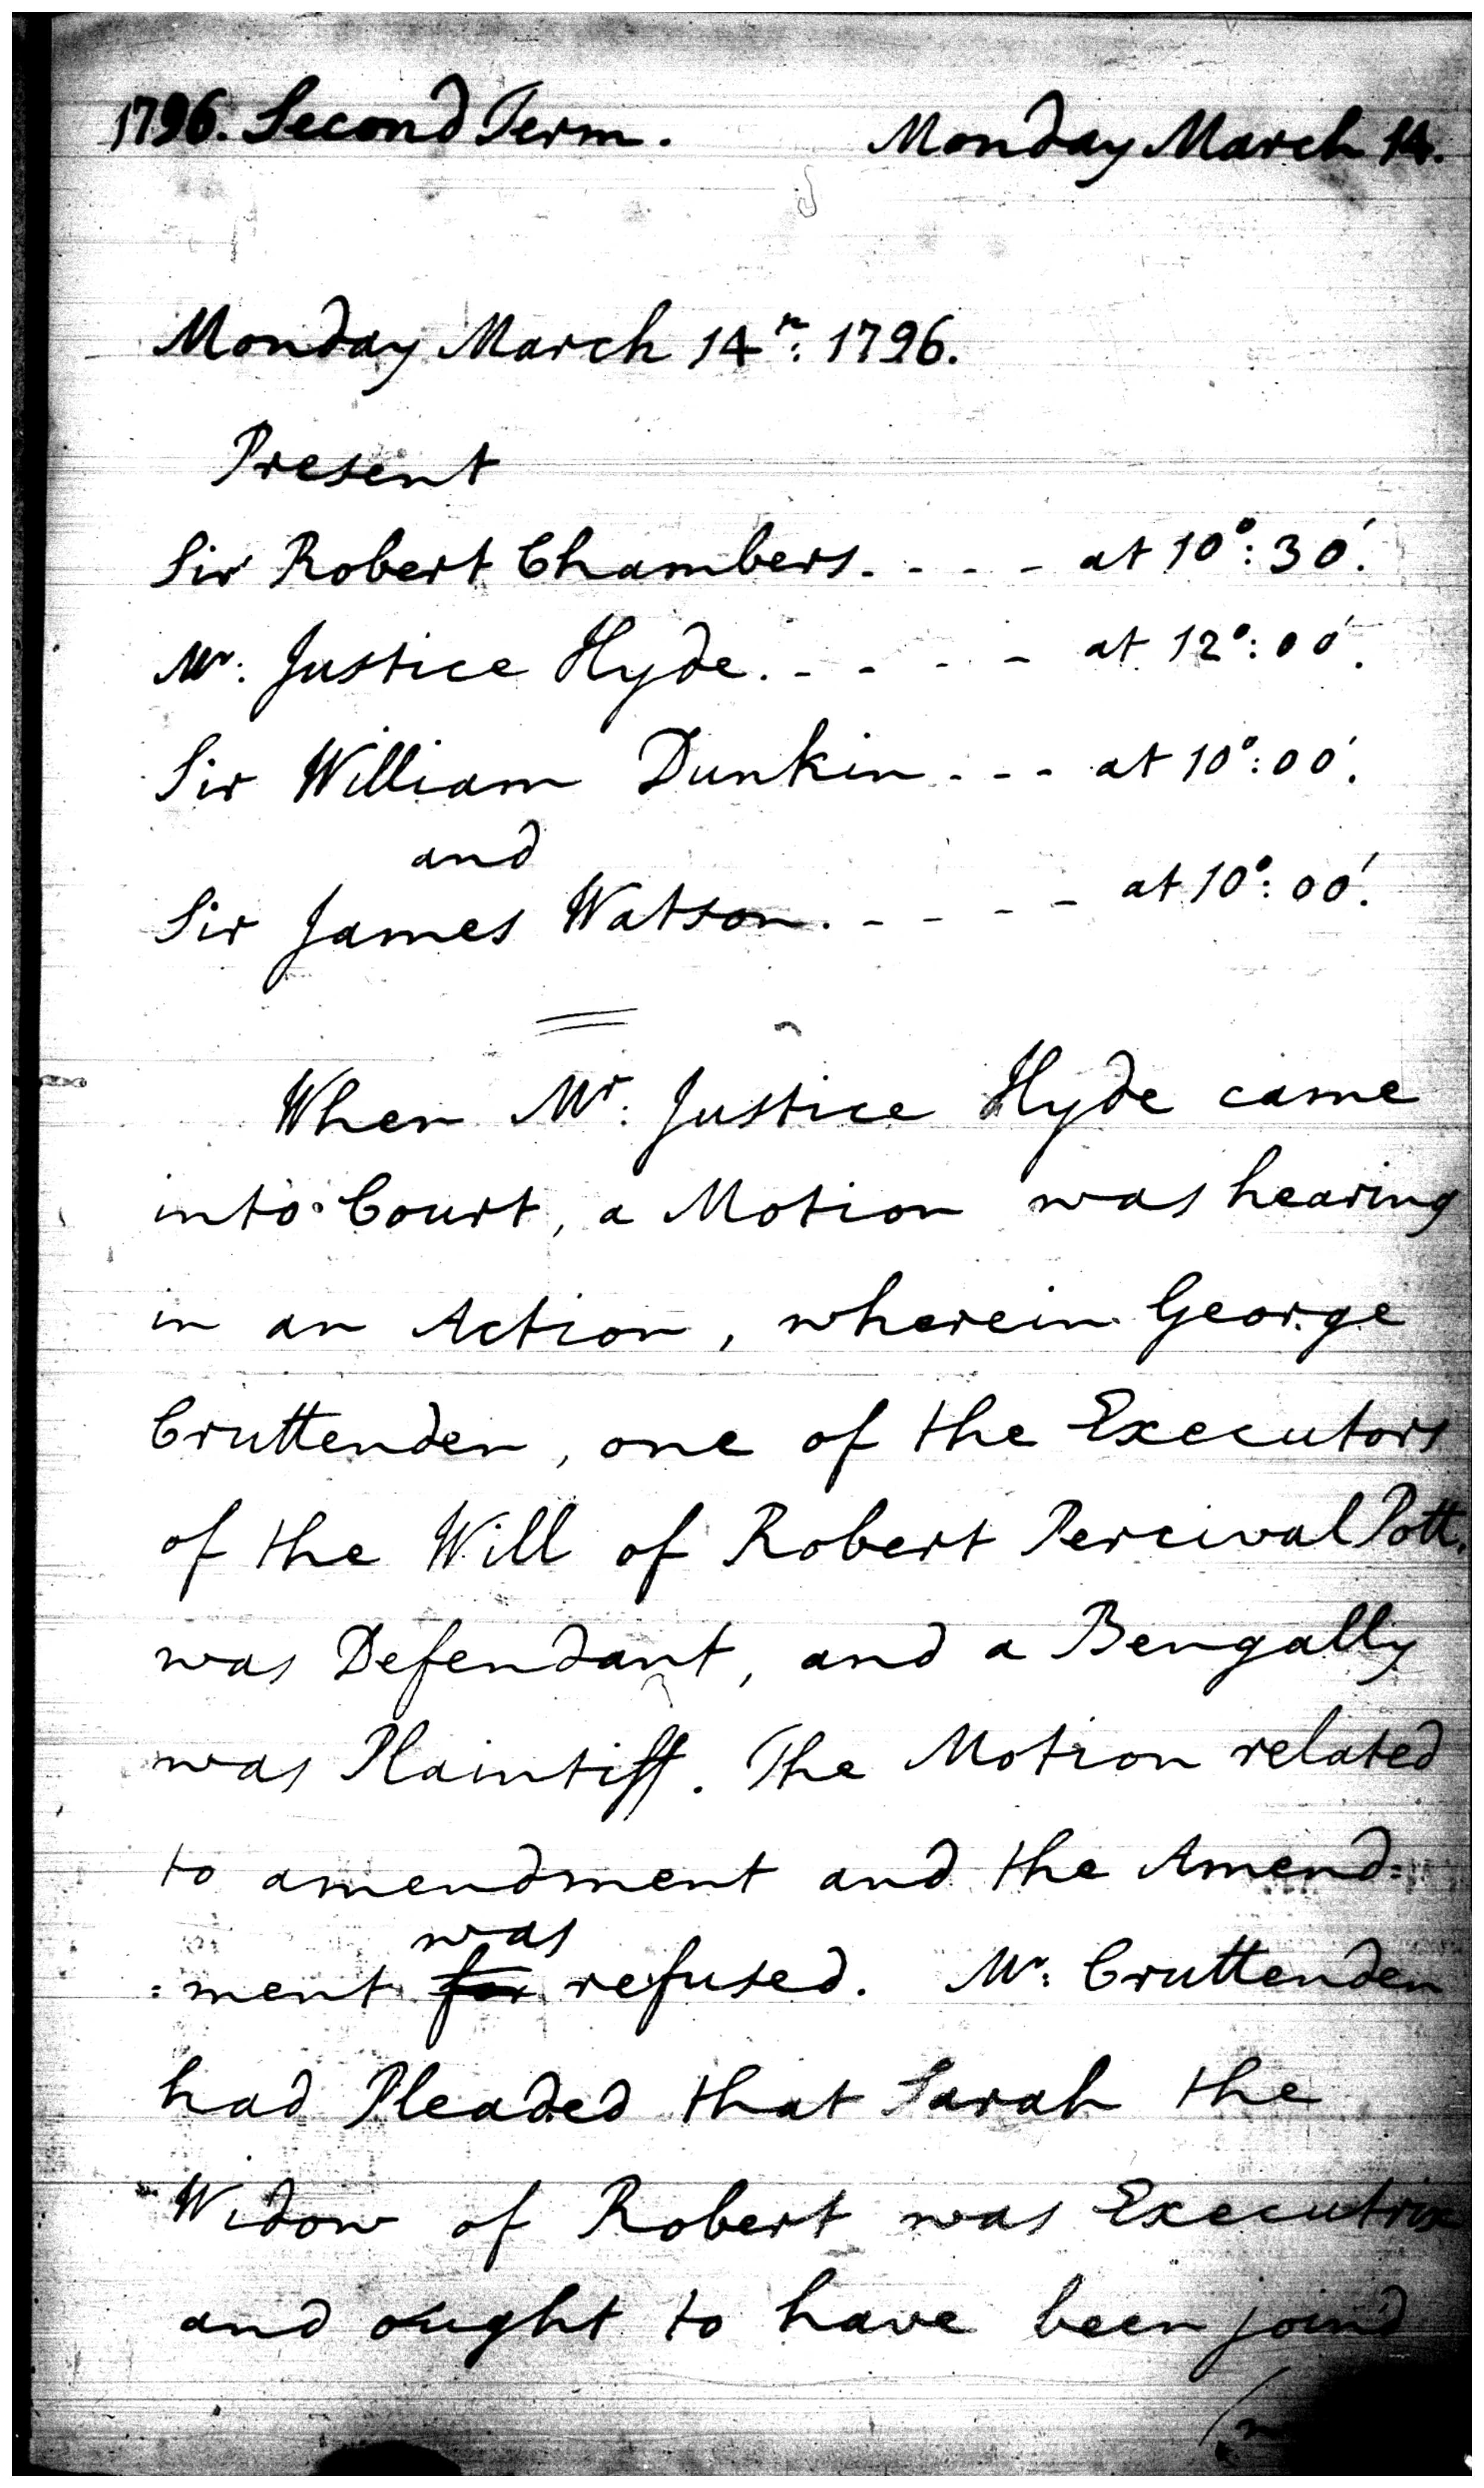 1796. Second Term. Monday March 14.
Monday March 14th: 1796.
Present
Sir Robert Chambers. - - - at 10°: 30'.
Mr: Justice Hyde. - - - - at 12°: 00'.
Sir William Dunkin - - - at 10°: 00'.
and
Sir James Watson. - - - - at 10°: 00'.
When Mr: Justice Hyde came
into Court, a Motion was hearing
in an Action, wherein George
Cruttenden, one of the Executors
of the Will of Robert Percival Pott.
was Defendant, and a Bengally
was Plaintiff. The Motion related
to amendment and the Amend=
was
=ment for refused. Mr: Cruttenden
had Pleaded that Sarah the
Widow of Robert was Executrix
and ought to have been join'd